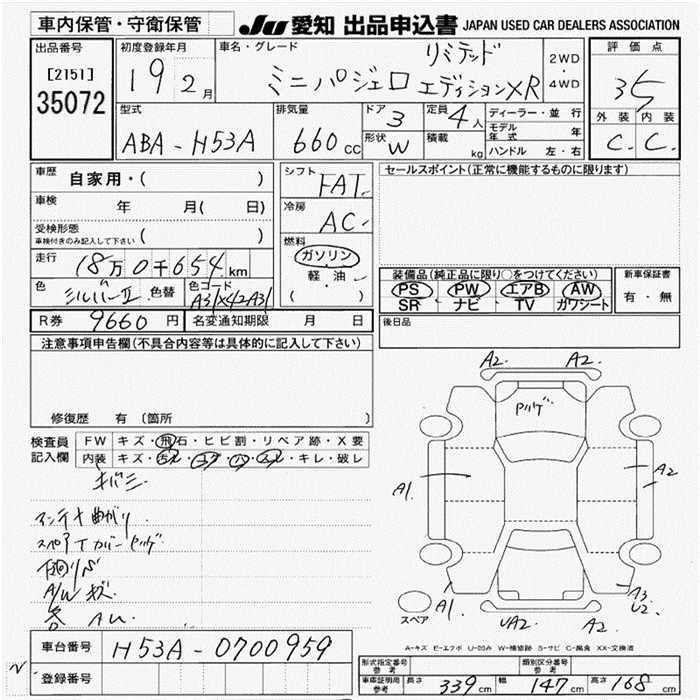 車内保管・守衛保管 JU 愛知 出品申込書 JAPAN USED CAR DEALERS ASSOCIATION
出品番号 初度登録年月 車名・グレード リミテッド 2WD・4WD 評価点
[2151] 19 2月 ミニパジェロ エディションXR 3.5
35072
型式 排気量 ドア 3 定員 4人 ディーラー・並行 外装 内装
ABA-H53A 660cc 形状 W 積載 kg モデル年式 年 C. C.
ハンドル 左・右
車歴 自家用・( ) シフト FAT セールスポイント(正常に機能するものに限ります)
車検 年 月( 日) 冷房 AC
受検形態 ( )
車検付きのみ記入して下さい
燃料
走行 18万0千654km ガソリン
軽・油
( )
装備品(純正品に限り○をつけてください) 新車保証書
色 シルバーII 色替 色コード A31X42A31 PS PW エアB AW 有・無
SR ナビ TV カワシート
R券 9660円 名変通知期限 月 日 後日品
注意事項申告欄(不具合内容等は具体的に記入して下さい)
A2. A2.
修復歴 有 (箇所
検査員 FW キズ・飛石・ヒビ割・リペア跡・X要
記入欄 内装 キズ・汚レ・コゲ・穴・スレ・キレ・破レ
キバミ
A1. A2
アンテナ曲がり
スペアTカバーヤケ
A/W キズ
各 AU.
スペア A1. UA2. A2. A3. U2.
A-キズ E-エクボ U-凹み W-補修跡 S-サビ C-腐食 XX-交換済
車台番号 H53A-0700959
登録番号
形式指定番号 参考 類別区分番号 参考
車庫証明用 参考 長さ 339cm 幅 147cm 高さ 168cm